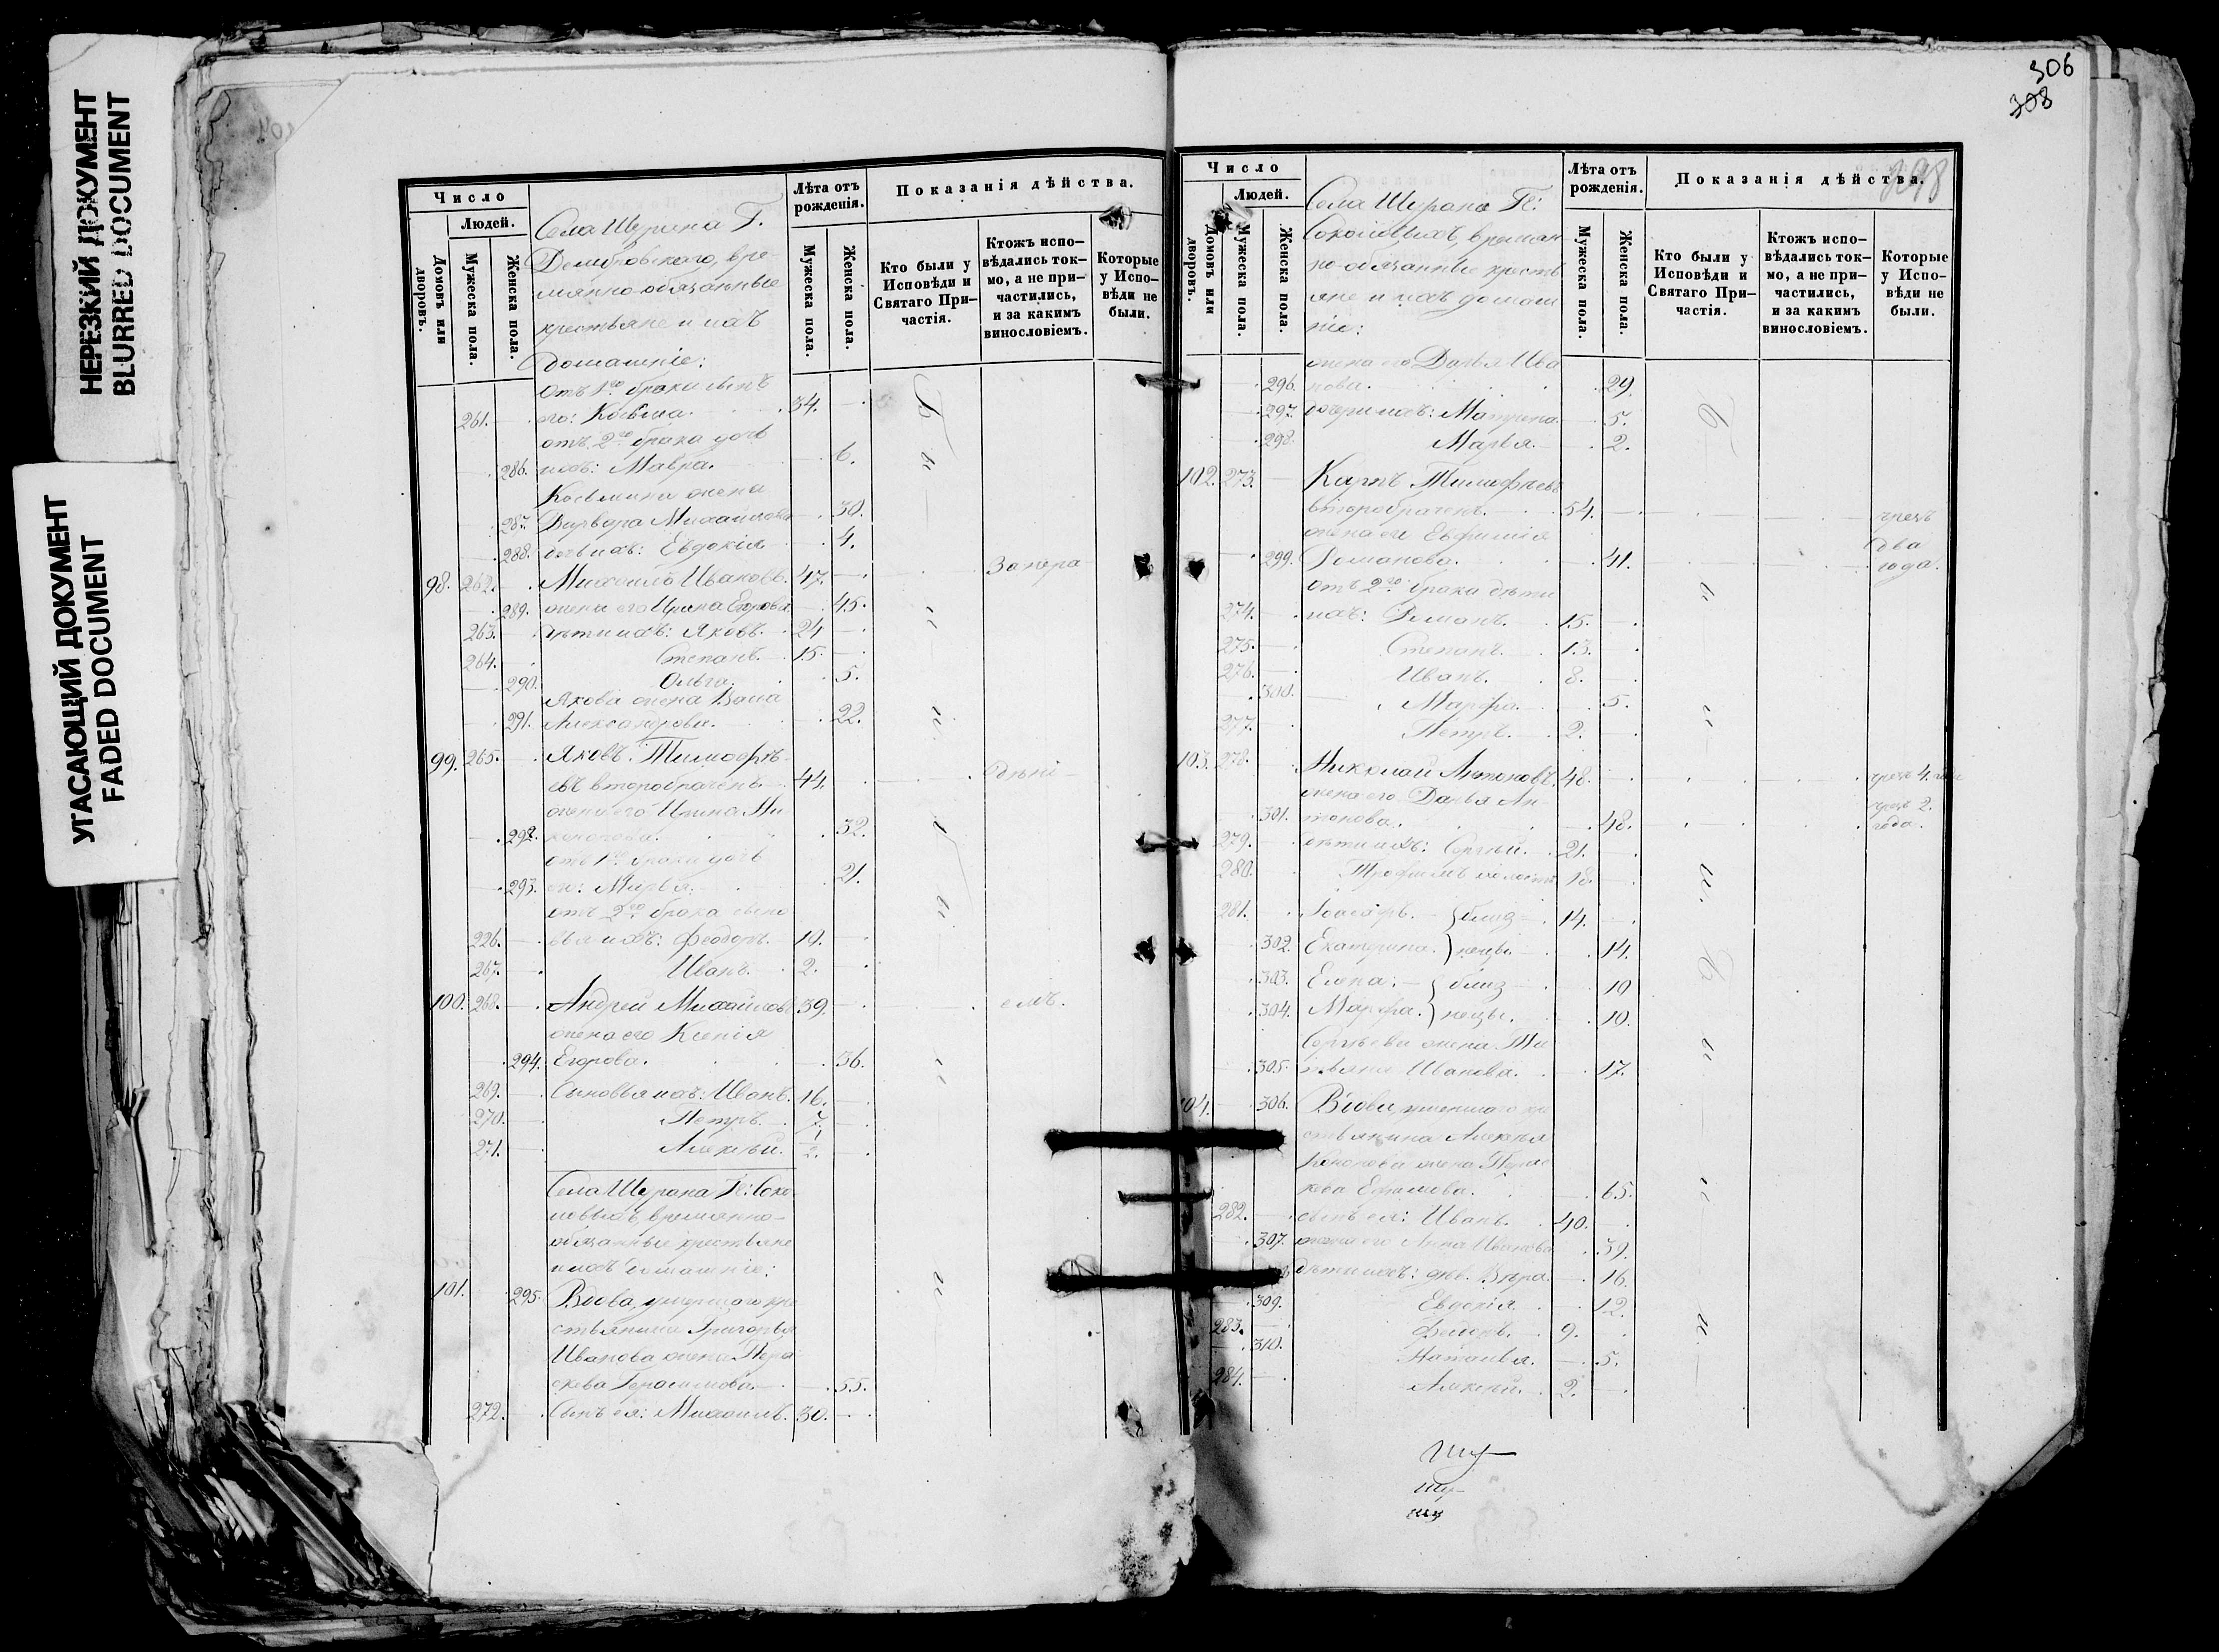 НЕРЕЗКИЙ ДОКУМЕНТ
BLURRED DOCUMENT
УГАСАЮЩИЙ ДОКУМЕНТ
FADED DOCUMENT
Число
Людей.
Домовъ или дворовъ.
Мужеска пола.
Женска пола.
Лѣта отъ рожденія.
Мужеска пола.
Женска пола.
Показанія дѣйства.
Кто были у Исповѣди и Святаго Причастія.
Ктожъ исповѣдались токмо, а не причастились, и за какимъ винословіемъ.
Которые у Исповѣди не были.
Села Шурана Г.
временно-обязанные
крестьяне и ихъ
домашніе:
отъ 1го брака сынъ
261. его: Косьма. 34.
отъ 2го брака дочь
286. ихъ: Мавра. 6.
Косьмина жена
287. Варвара Михайлова 30.
288. дочь ихъ: Евдокія 4.
98. 262. Михаилъ Ивановъ. 47.
289. жена его Ирина Егорова 45.
263. дѣти ихъ: Яковъ. 24
264. Степанъ. 15.
290. Ольга. 5.
Якова жена
291. Александрова. 22.
99. 265. Яковъ Тимофѣ-
евъ второбраченъ 44.
жена его Ирина
292. 32.
отъ 1го брака дочь
293. его: Марья. 21.
отъ 2го брака сыно
226. вья ихъ: Феодоръ. 10.
267. Иванъ. 2.
100. 268. Андрей Михайловъ 39.
жена его Ксенія
294. Егорова. 36.
269. Сыновья ихъ: Иванъ. 16.
270. Петръ. 7.
271. Алексѣй. 1/2.
Села Шурана Гг: Соко-
ловыхъ, временно-
обязанные крестьяне
и ихъ домашніе:
101. 295. Вдова, умершаго кре
стьянина Григорья
Иванова жена Пара
скева Герасимова. 55.
272. Сынъ ея: Михаилъ. 30.
306
308
298
Число
Людей.
Домовъ или дворовъ.
Мужеска пола.
Женска пола.
Лѣта отъ рожденія.
Мужеска пола
Женска пола.
Показанія дѣйства.
Кто были у Исповѣди и Святаго Причастія.
Ктожъ исповѣдались токмо, а не причастились, и за какимъ винословіемъ.
Которые у Исповѣди не были.
Села Шурана Гг:
Соколовыхъ, времен-
но-обязанные кресть
яне и ихъ домаш
ніе:
жена его Дарья Ива
296. нова. 29.
297. дочери ихъ: Матрена. 5.
298. Марья. 2.
102. 273. Карпъ Тимофѣевъ
второбраченъ. 54. чрезъ
жена его Евфимія два
299. Романова. 41. года.
отъ 2го брака дѣти
274. ихъ: Романъ. 15.
275. Степанъ. 13.
276. Иванъ. 8.
300. Марфа. 5.
277. Петръ. 2.
103. 278. Николай Антоновъ 48. чрезъ 4. года
жена его Дарья Ан чрезъ 2.
301. тонова. 48. года.
279. дѣти ихъ: Сергѣй. 21.
280. Трофимъ холостъ 18.
281. близ 14.
302. Екатерина. нецы. 14.
303. Елена. близ 10
304. Марфа. нецы. 10.
Сергѣева жена Та
305. тьяна Иванова. 17.
104. 306. Вдова, умершаго кре
стьянина Алексѣя
Кононова жена Парас
кева Ефимова. 65.
282. сынъ ея: Иванъ. 40.
307. жена его Анна Иванова 39.
дѣти ихъ: дѣв. Вѣра. 16.
309. Евдокія. 12.
283. 9.
310. Наталья. 5.
284. Алексѣй. 2.